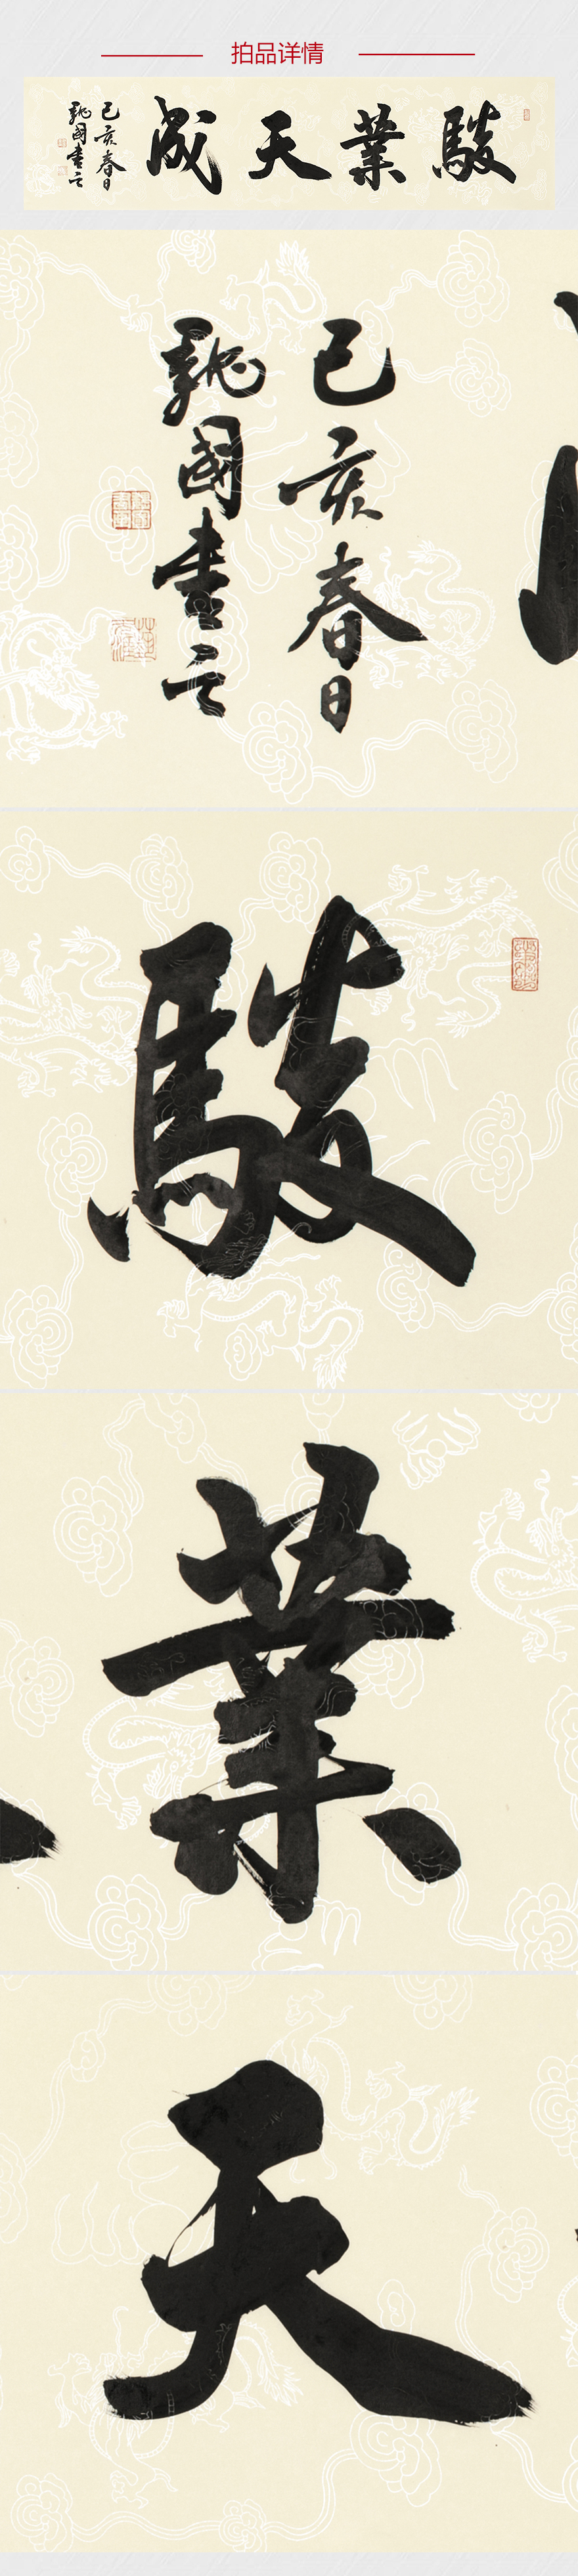 拍品详情
駿業天成
己亥春日
國書之
己亥春日
國書之
駿
業
天